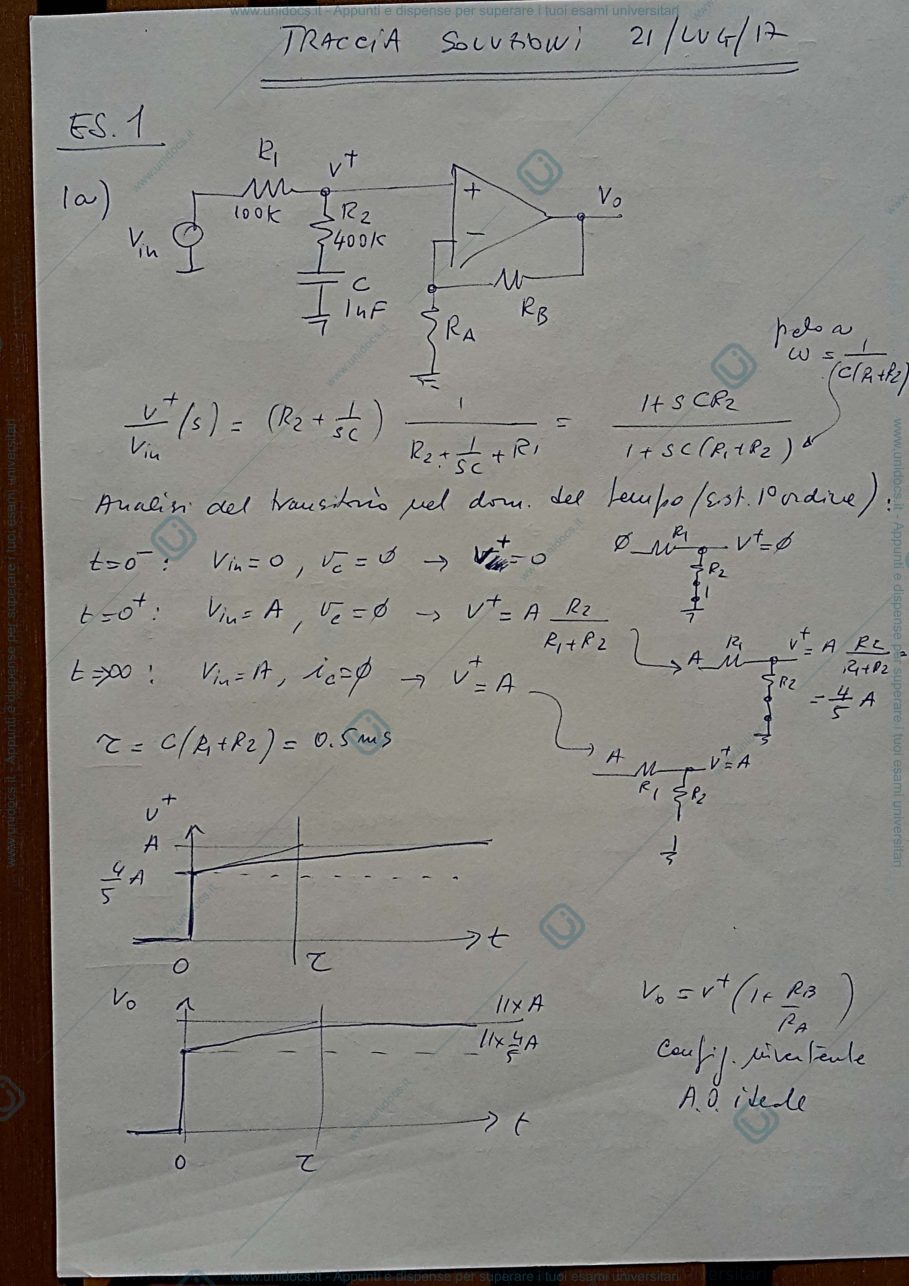 www.unidocs.it - Appunti e dispense per superare i tuoi esami universitari
TRACCIA SOLUZIONI 21/LUG/17
ES. 1
1a)
R1
100K
V+
R2
400K
C
1nF
Vin
+
−
Vo
RB
RA
polo a
ω = 1/(C(R1+R2)
V+/Vin (s) = (R2 + 1/sC) 1/(R2 + 1/sC + R1) = (1+sCR2)/(1+sC(R1+R2))
Analisi del transitorio nel dom. del tempo (sist. 1° ordine):
t=0-: Vin=0, vc=∅ → V+=0
∅ R1 V+=∅
R2
t=0+: Vin=A, vc=∅ → V+=A R2/(R1+R2)
A R1 V+=A R2/(R1+R2) =
R2
= 4/5 A
t→∞: Vin=A, ic=∅ → V+=A
A V+=A
R1 R2
τ = C(R1+R2) = 0.5ms
V+
A
4/5 A
0 τ t
Vo
11xA
11x4/5A
0 τ t
Vo = V+(1+ RB/RA)
Config. invertente
A.O. ideale
www.unidocs.it - Appunti e dispense per superare i tuoi esami universitari